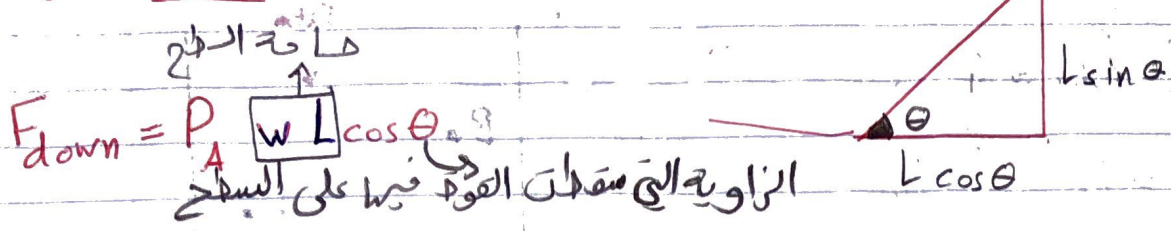 مساحة السطح
F_down = P_A w L cos θ
الزاوية التي سقطت القوة فيها على السطح
L sin θ
θ
L cos θ